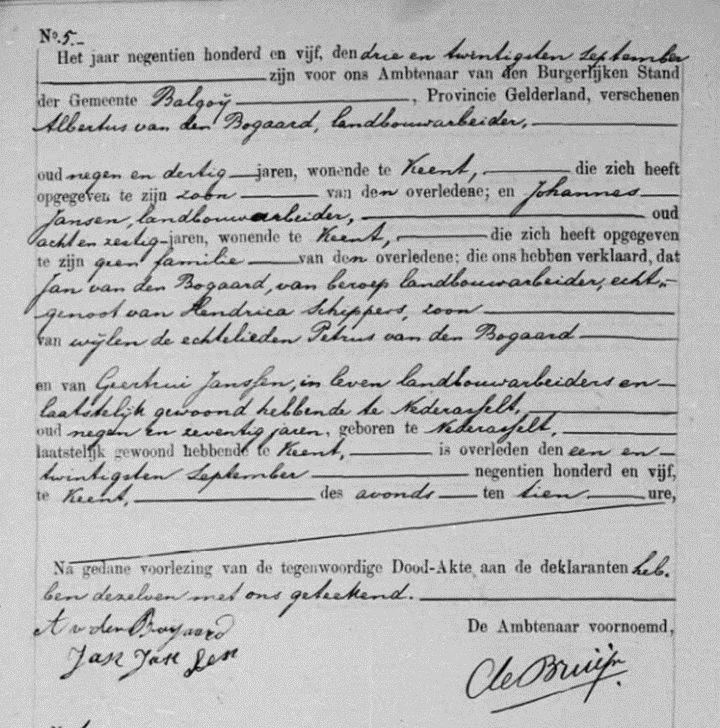 No. 5.
Het jaar negentien honderd en vijf, den drie en twintigsten september
zijn voor ons Ambtenaar van den Burgerlijken Stand
der Gemeente Balgoij, Provincie Gelderland, verschenen
Albertus van den Bogaard, landbouwarbeider,
oud negen en dertig jaren, wonende te Keent, die zich heeft
opgegeven te zijn zoon van den overledene; en Johannes
Jansen, landbouwarbeider, oud
acht en zestig jaren, wonende te Keent, die zich heeft opgegeven
te zijn geen familie van den overledene; die ons hebben verklaard, dat
Jan van den Bogaard, van beroep landbouwarbeider, echt-
genoot van Hendrica Schippers, zoon
van wijlen de echtelieden Petrus van den Bogaard
en van Geertrui Janssen, in leven landbouwarbeiders en
laatstelijk gewoond hebbende te Nederasselt,
oud negen en zeventig jaren, geboren te Nederasselt,
laatstelijk gewoond hebbende te Keent, is overleden den een en
twintigsten September negentien honderd en vijf,
te Keent, des avonds ten tien ure,
Na gedane voorlezing van de tegenwoordige Dood-Akte aan de deklaranten heb-
ben dezelven met ons geteekend.
A v den Bogaard
De Ambtenaar voornoemd,
Jan Jan Sen
de Bruijn